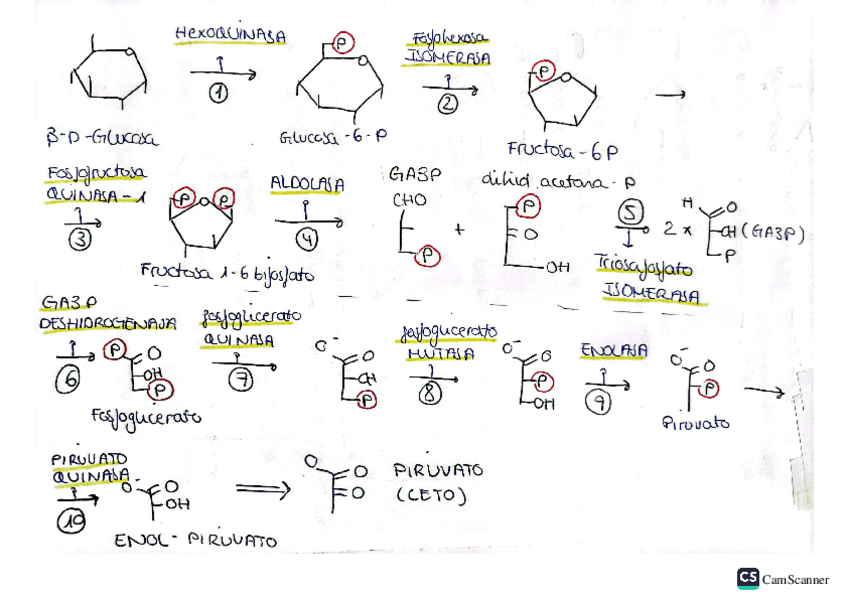 HEXOQUINASA
Fosfohexosa
ISOMERASA
P
P
P
1
2
β-D-Glucosa
Glucosa-6-P
Fructosa-6P
Fosfofructosa
QUINASA-1
3
P
P
ALDOLASA
4
GA3P
CHO
P
+
dihid. acetona-P
P
O
OH
5
Triosafosfato
ISOMERASA
2 x
H
O
OH (GA3P)
P
Fructosa 1-6 bifosfato
GA3P
DESHIDROGENASA
6
P
O
OH
P
Fosfoglicerato
fosfoglicerato
QUINASA
7
O-
O
OH
P
fosfoglicerato
MUTASA
8
O-
O
P
OH
ENOLASA
9
O-
O
P
Piruvato
PIRUVATO
QUINASA
10
O-
O
OH
ENOL-PIRUVATO
O
O
O
PIRUVATO
(CETO)
CS CamScanner